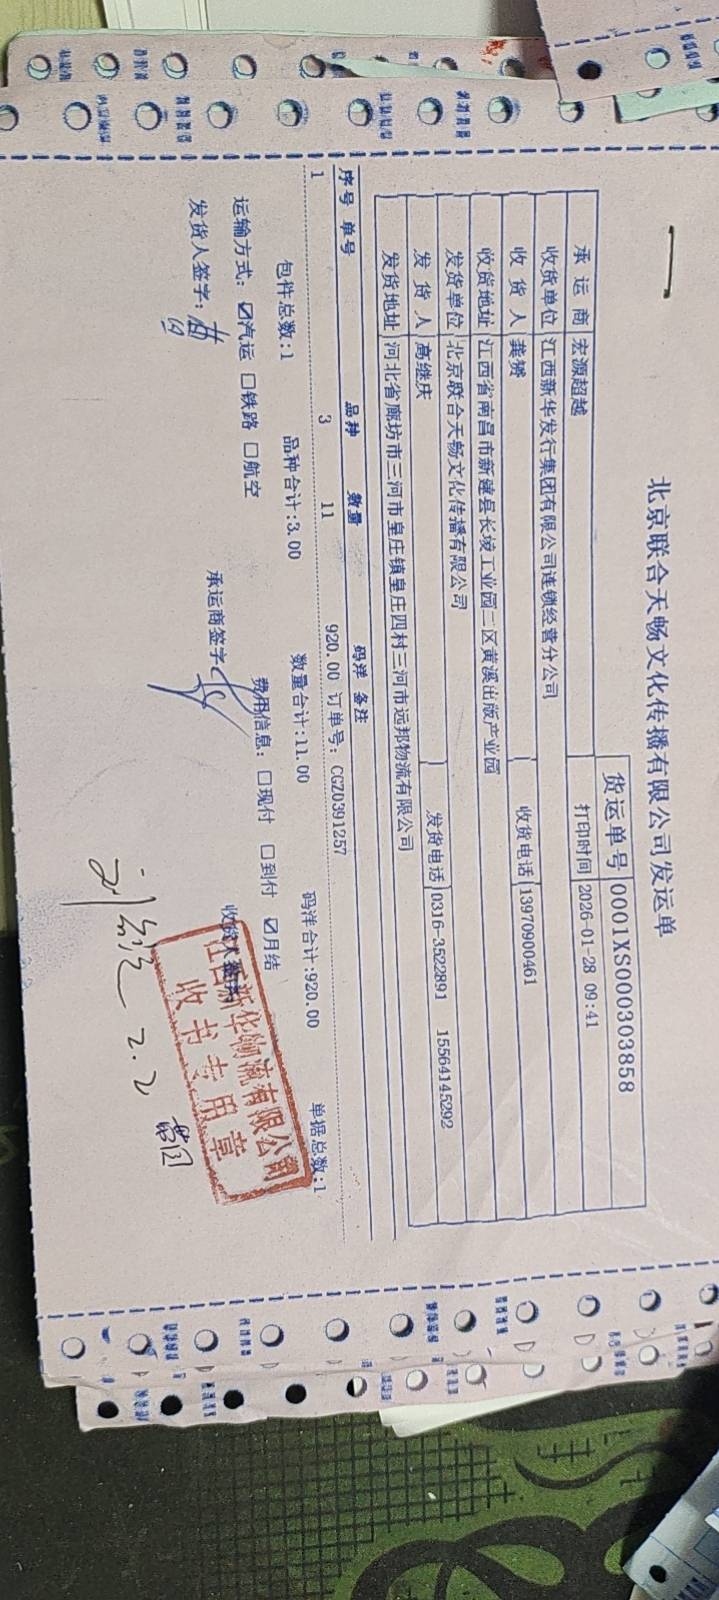 北京联合天畅文化传播有限公司发运单
货运单号 0001XS000303858
承运商 宏源超越 打印时间 2026-01-28 09:41
收货单位 江西新华发行集团有限公司连锁经营分公司
收货人 龚赟 收货电话 13970900461
收货地址 江西省南昌市新建县长堎工业园二区黄溪出版产业园
发货单位 北京联合天畅文化传播有限公司
发货人 高继庆 发货电话 0316-3522891 15564145292
发货地址 河北省廊坊市三河市皇庄镇皇庄四村三河市远邦物流有限公司
序号 单号 品种 数量 码洋 备注
1 3 11 920.00 订单号: CGZ0391257
包件总数:1 品种合计:3.00 数量合计:11.00 码洋合计:920.00 单据总数:1
运输方式: ☑汽运 □铁路 □航空 费用信息: □现付 □到付 ☑月结
发货人签字: 承运商签字: 收货人签字:
江西新华物流有限公司
收书专用章
2.2